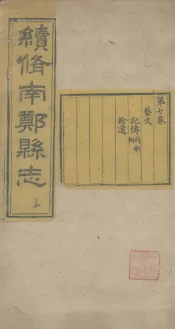 續修南鄭縣志
第七卷
藝文
記傳
拾遺